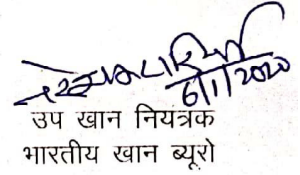 6/1/2020
उप खान नियत्रक
भारतीय खान ब्यूरो